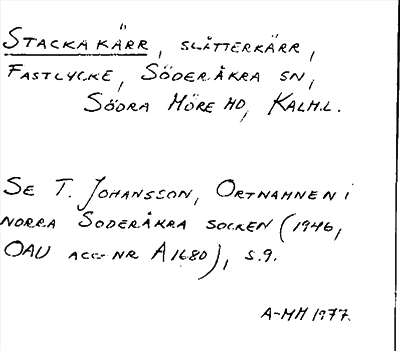 STACKAKÄRR, SLÅTTERKÄRR,
FASTLYCKE, SÖDERÅKRA SN,
SÖDRA MÖRE HD, KALM.L.
SE T. JOHANSSON, ORTNAMNEN I
NORRA SÖDERÅKRA SOCKEN (1946,
OAU ACC NR A1680), S.9.
A-MH 1977.